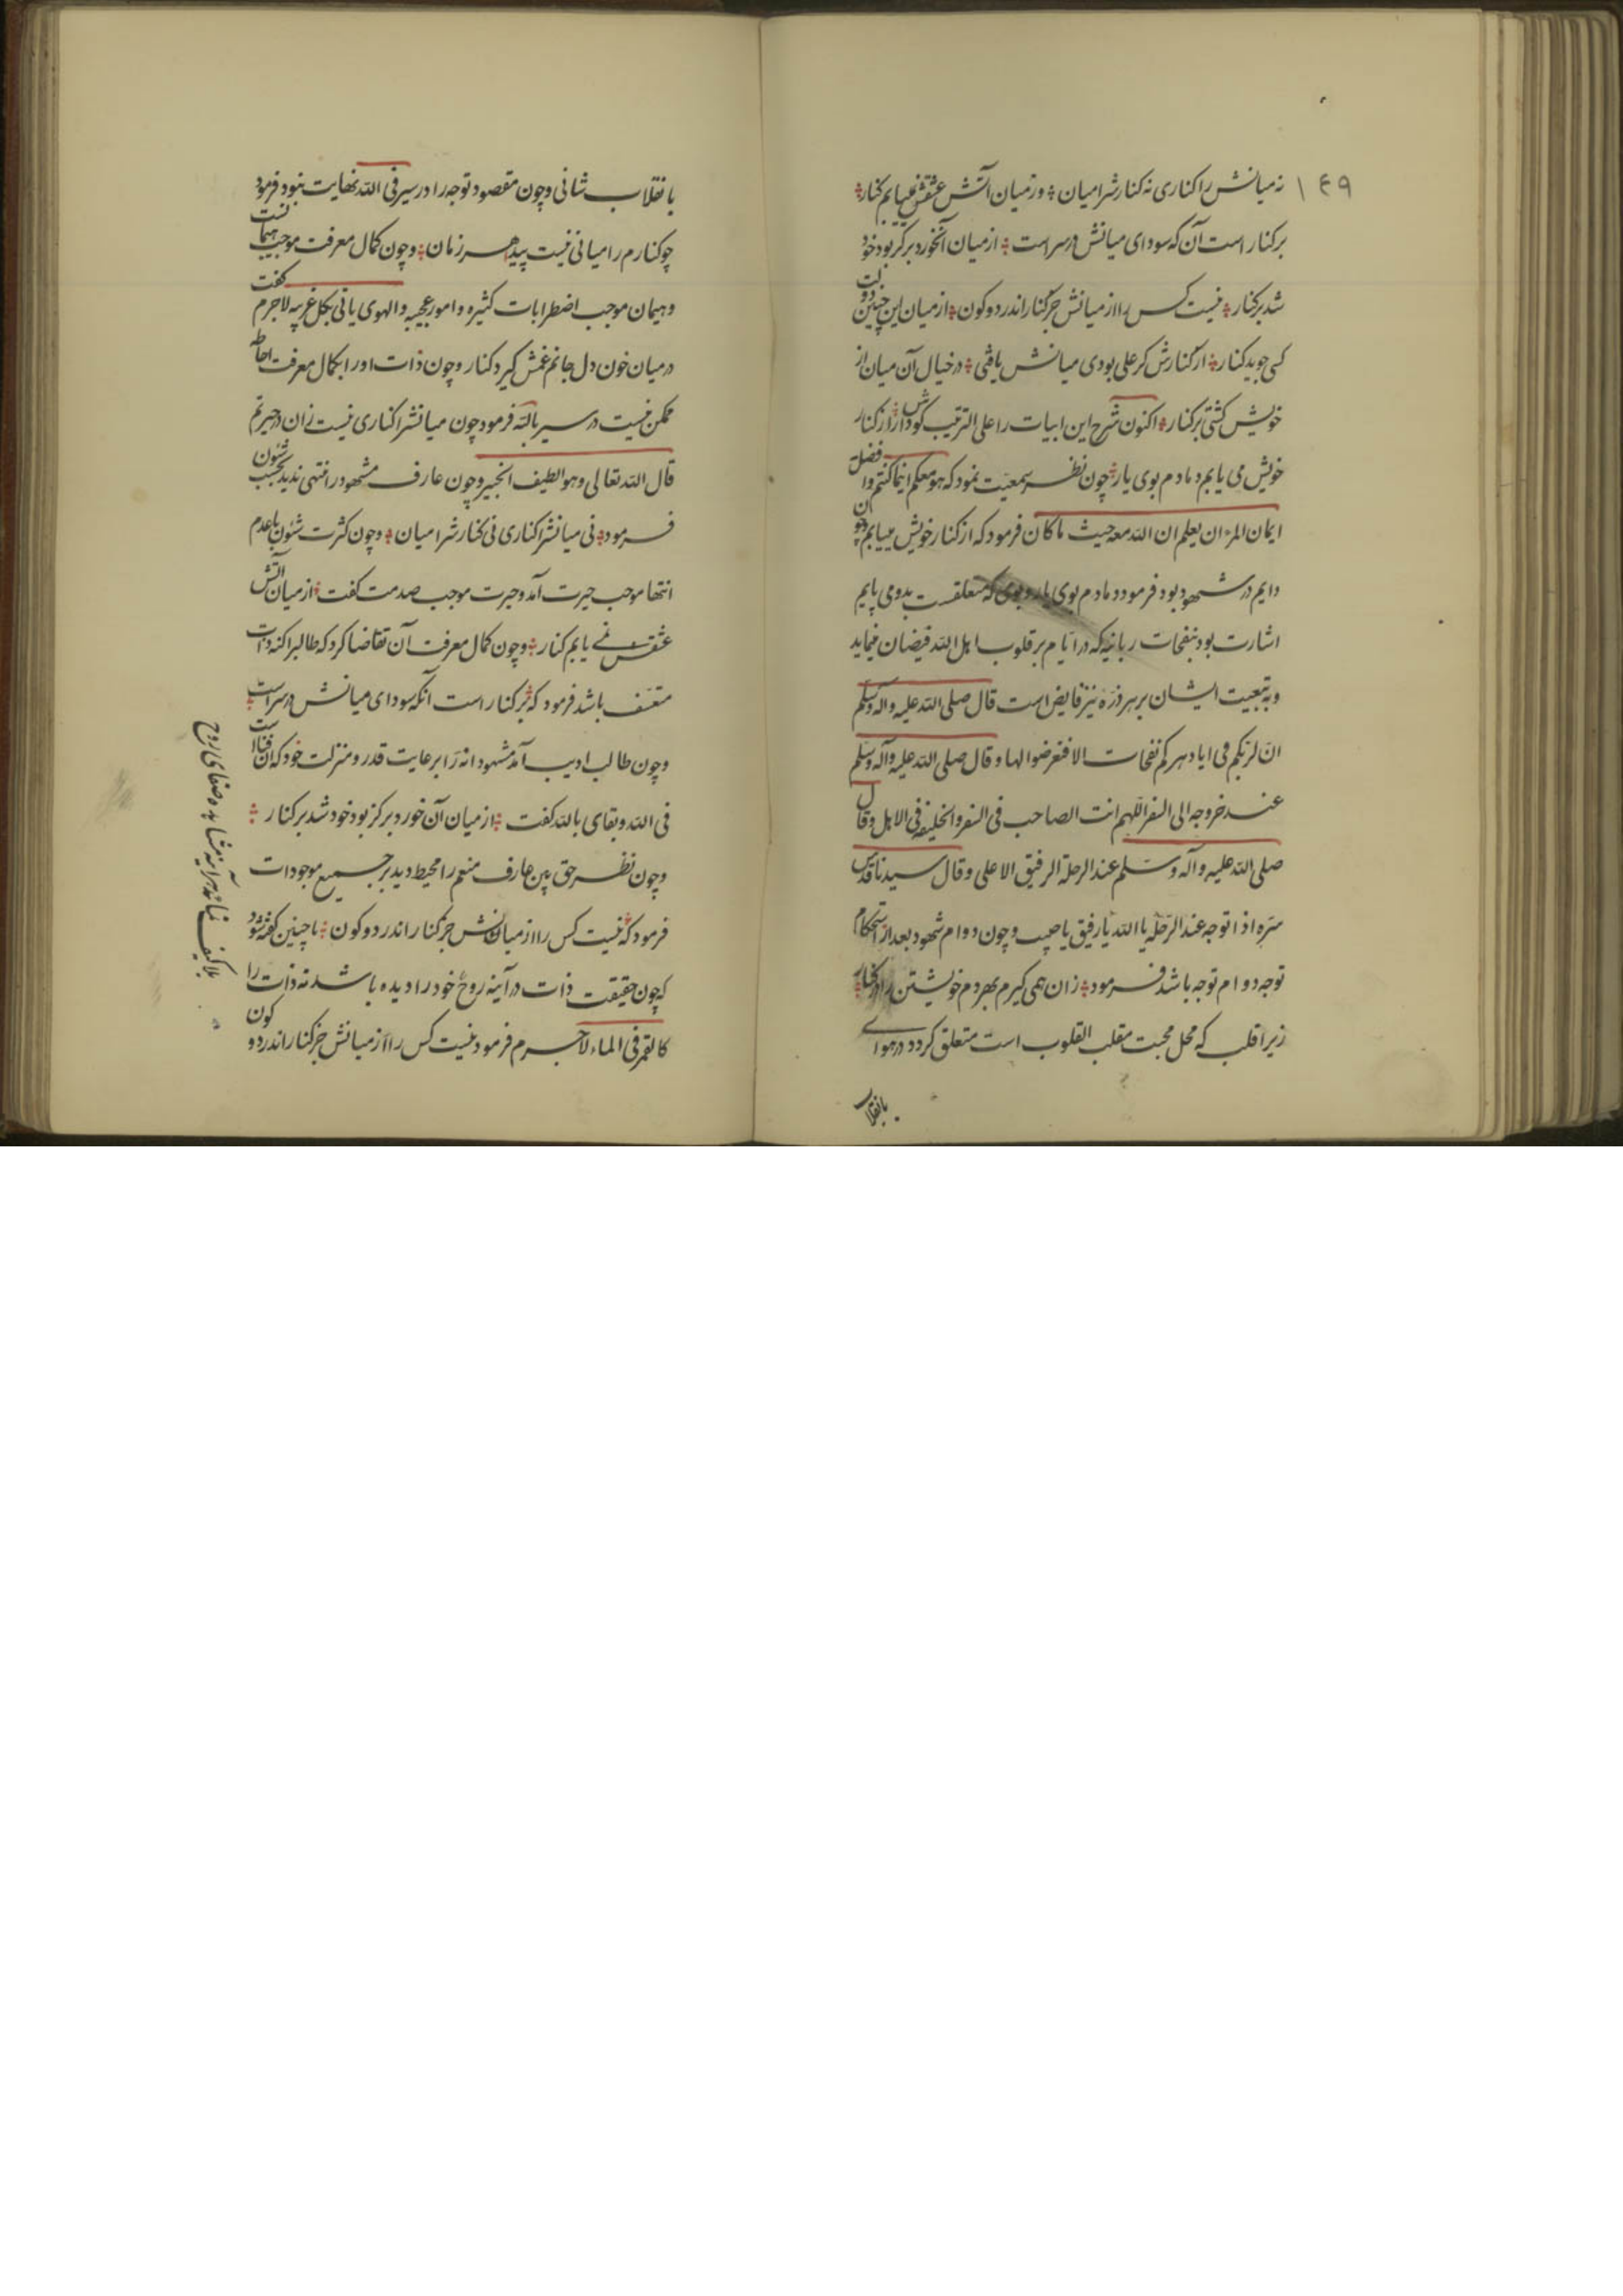 ۱۴۹
نه میانش را کناری نه کنارش را میان وز میان آتش عشقش نمییابم کنار
بر کنار است آن که سودای میانش در سر است از میان آنخورد بر کز بود خود
شد بر کنار نیست کس را از میانش جز کنار اندر دو کون از میان این چنین دولت
کی جوید کنار از کنارش گر علی بودی میانش یافتی در خیال آن میان از
خویش گشتی بر کنار اکنون شرح این ابیات را علی الترتیب گوش دار از کنار
خویش می یابم دمادم بوی یار چون نظر بمعیت نمود که هو معکم اینما کنتم وا فضل
ایمان المرء ان یعلم ان الله معه حیث ما کان فرمود که از کنار خویش مییابم چو ان
دایم در شهود بود فرمود دمادم بوی یار و بوی که متعلقست بدو می یابم
اشارت بود بنفحات ربانیه که در ایام بر قلوب اهل الله فیضان مینماید
و به تبعیت ایشان بر هر ذره نیز فایض است قال صلی الله علیه و آله وسلم
ان لربکم فی ایام دهرکم نفحات الا فتعرضوا لها و قال صلی الله علیه وآله وسلم
عند خروجه الی السفر اللهم انت الصاحب فی السفر والخلیفة فی الاهل وقال
صلی الله علیه وآله وسلم عند الرحلة الرفیق الاعلی وقال سیدنا قدس
سره اذا توجه عند الرحلة یا الله یا رفیق یا حبیب و چون دوام شهود بعد از استحکام
توجه دوام توجه باشد فرمود زان همی گیرم بهر دم خویشتن را در کنار
زیرا قلب که محل محبت مقلب القلوب است متعلق گردد در هوای
بانقلاب
بانقلاب شانی و چون مقصود توجه را در سیر فی الله نهایت نبود فرمود
چو کنارم را میانی نیست پیدا هر زمان و چون کمال معرفت موجب هیمانست
و هیمان موجب اضطرابات کثیره و امور عجیبه و الهوی یاتی بکل غریبه لاجرم گفت
در میان خون دل جانم غمش گیرد کنار و چون ذات او را بکمال معرفت احاطه
ممکن نیست در سیر بالله فرمود چون میانش را کناری نیست زان در حیرتم
قال الله تعالی وهو الطیف الخبیر و چون عارف مشهود را منتهی ندید بحسب شئون
فرمود نی میانش را کناری نی کنارش را میان و چون کثرت شئون باعدم
انتها موجب حیرت آمد و حیرت موجب صدمت گفت از میان آتش
عشقش نمی یابم کنار و چون کمال معرفت آن تقاضا کرد که طالب را کنه ذات
متعسف باشد فرمود که بر کنار است آنکه سودای میانش در سر است
و چون طالب ادیب آمد مشهودانه را برعایت قدر و منزلت خود که آن فنا است
فی الله و بقای بالله گفت از میان آن خورد بر کز بود خود شد بر کنار
و چون نظر حق بین عارف منعم را محیط دید بر جمیع موجودات
فرمود که نیست کس را از میانش جز کنار اندر دو کون یا چنین گفته شود
که چون حقیقت ذات در آینه روح خود را دیده باشد نه ذات را
کالقمر فی الماء لاجرم فرمود نیست کس را از میانش جز کنار اندر دو کون